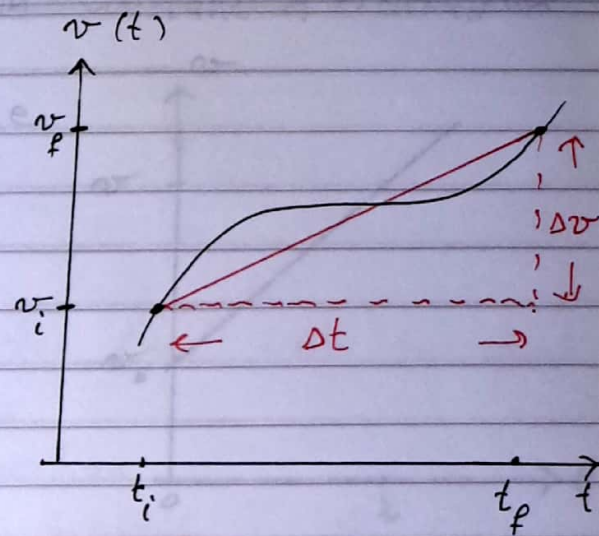 v (t)
v_f
Δv
v_i
Δt
t_i
t_f
t